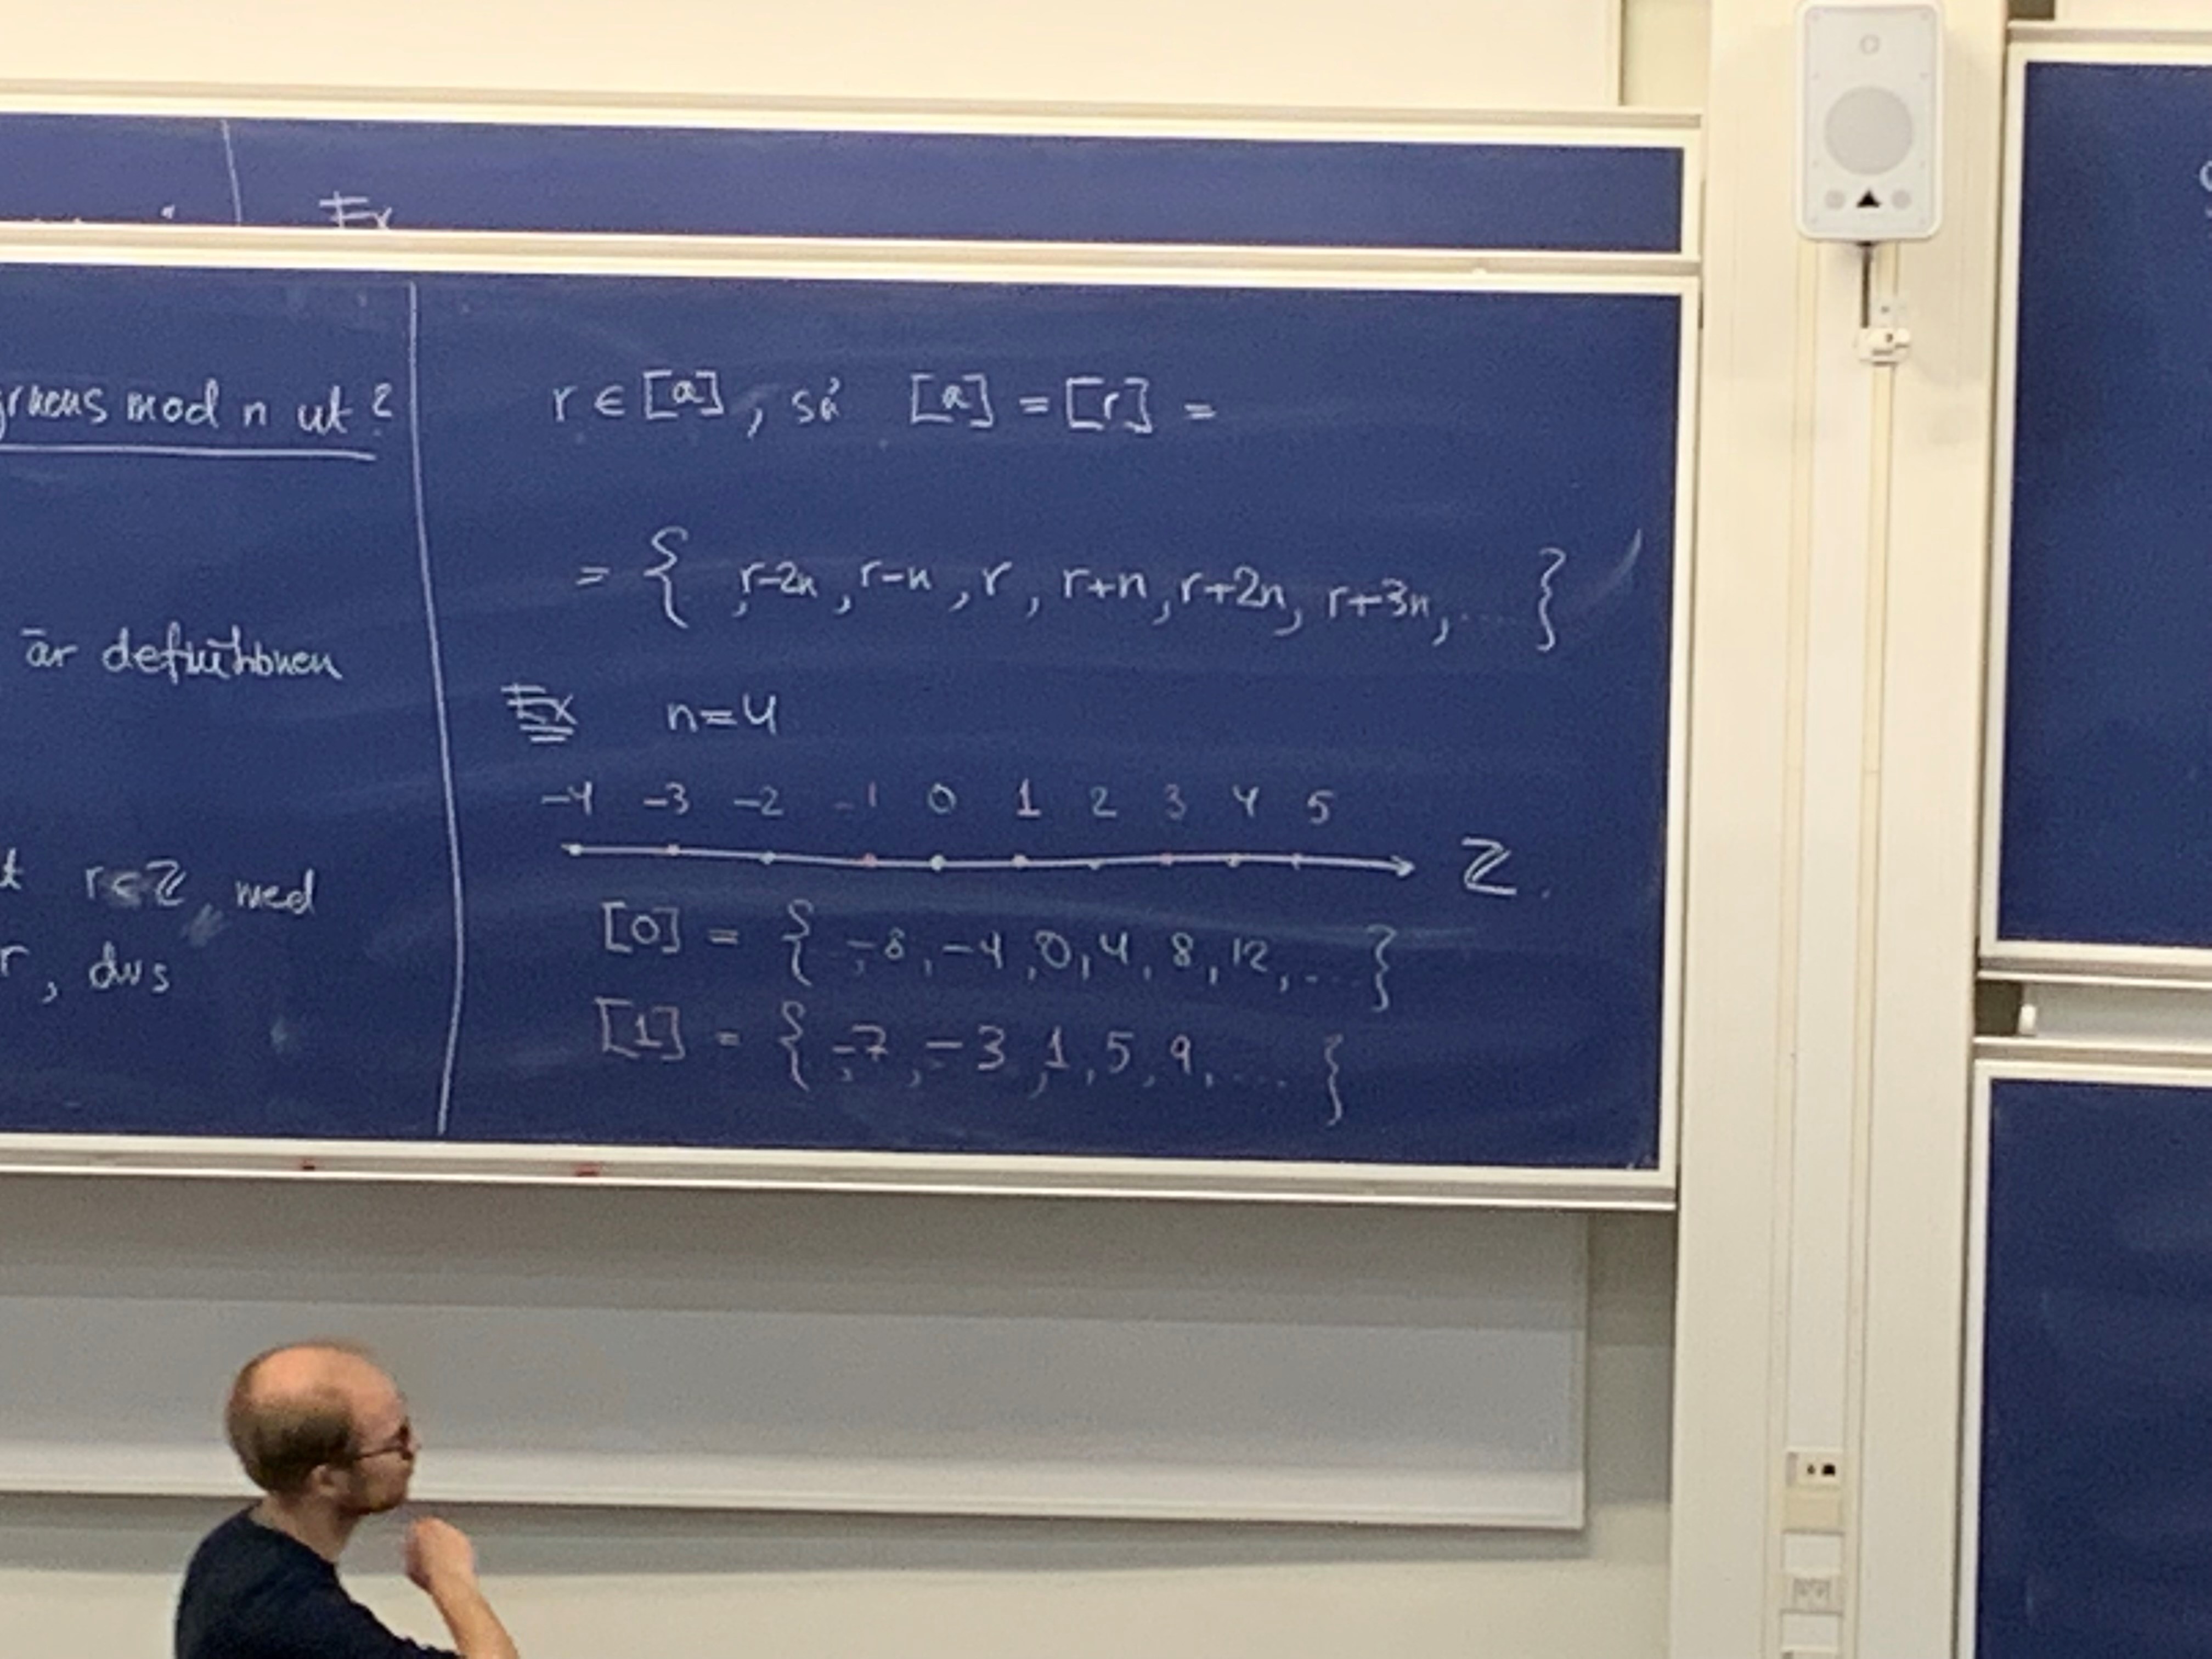 Ex
mod n ut?
är definitionen
r∈ℤ, med
r, dvs
r ∈ [a], så [a] = [r] =
= { , r-2n, r-n, r, r+n, r+2n, r+3n, ... }
Ex n=4
-4 -3 -2 -1 0 1 2 3 4 5
ℤ.
[0] = { -8, -4, 0, 4, 8, 12, ... }
[1] = { -7, -3, 1, 5, 9, ... }